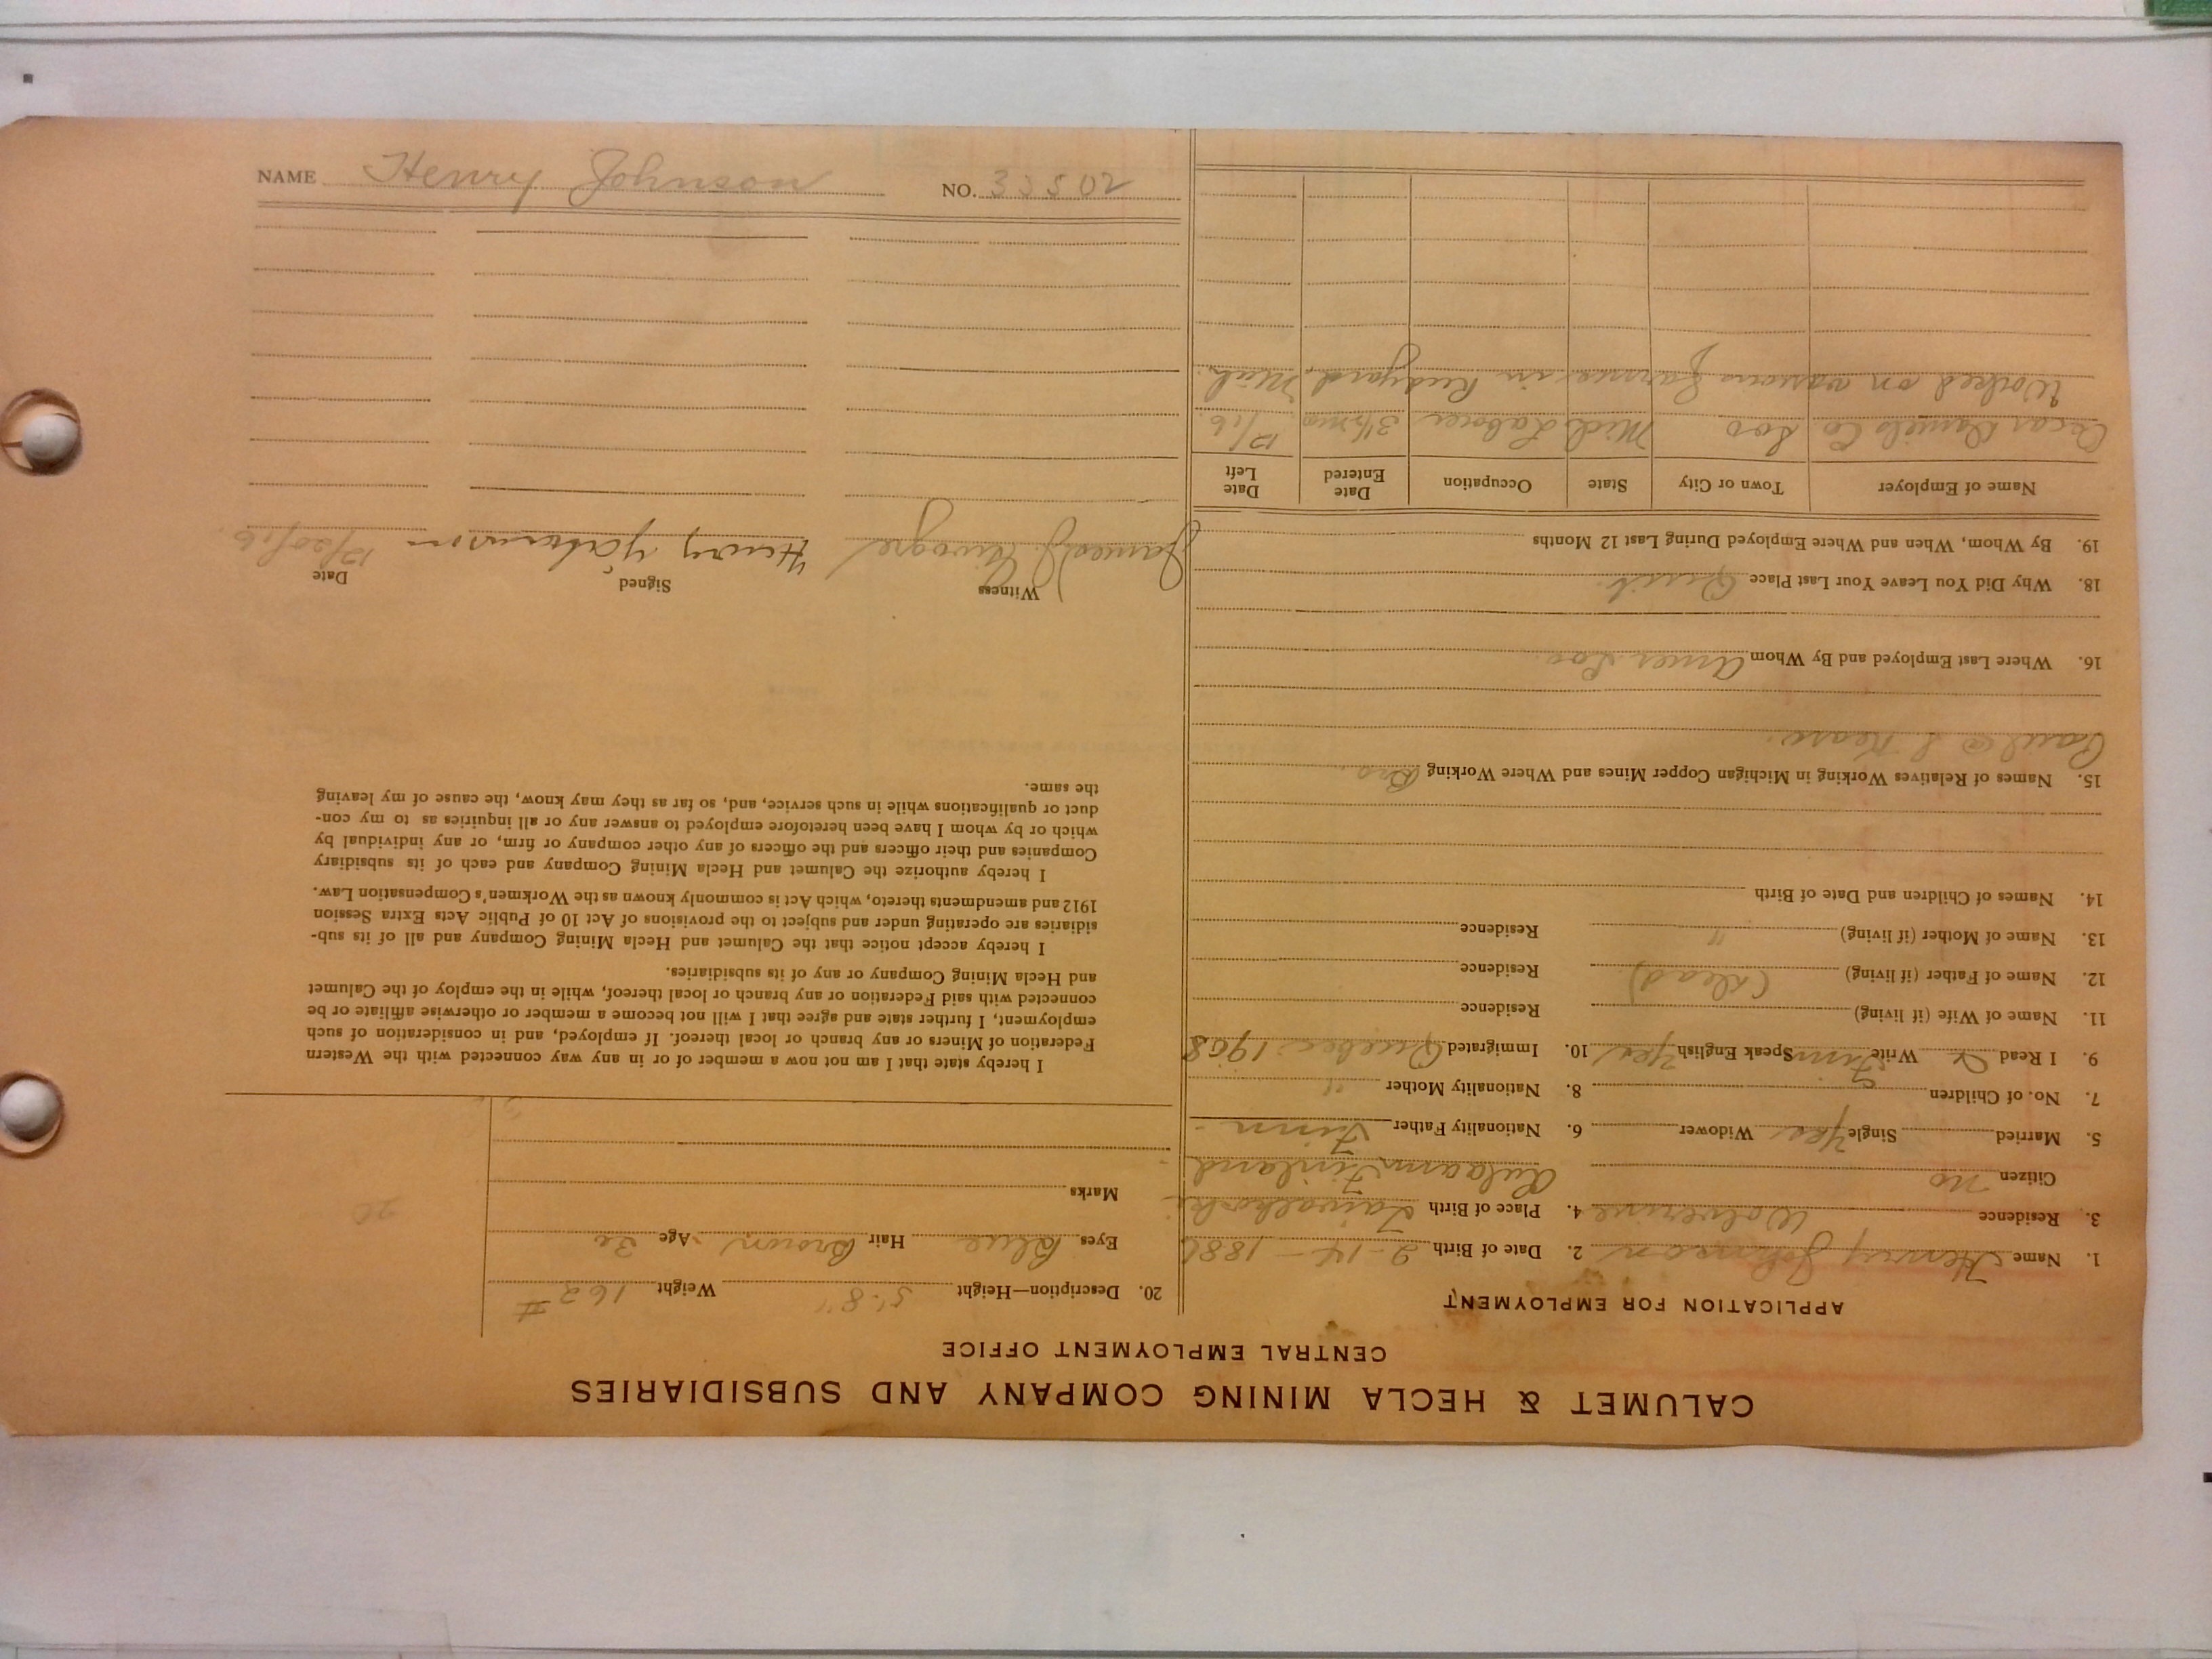 NAME Henry Johnson NO. 33502
CALUMET & HECLA MINING COMPANY AND SUBSIDIARIES
CENTRAL EMPLOYMENT OFFICE
APPLICATION FOR EMPLOYMENT
1. Name Henry Johnson 2. Date of Birth 2-14-1886
3. Residence Wolverine 4. Place of Birth
Citizen no Finland
5. Married Single Yes Widower 6. Nationality Father Finn
7. No. of Children 8. Nationality Mother "
9. I Read Write Finn Speak English Yes 10. Immigrated Quebec 1908
11. Name of Wife (if living) Residence
12. Name of Father (if living) (dead) Residence
13. Name of Mother (if living) " Residence
14. Names of Children and Date of Birth
15. Names of Relatives Working in Michigan Copper Mines and Where Working Bro
16. Where Last Employed and By Whom Amer Soo
18. Why Did You Leave Your Last Place Quit
19. By Whom, When and Where Employed During Last 12 Months
Name of Employer Town or City State Occupation Date Entered Date Left
Daniels Co. Soo Mich Laborer 3½ mo 12/16
Worked on various farms in Rudyard, Mich.
20. Description—Height 5'-8" Weight 162 #
Eyes Blue Hair Brown Age 30
Marks
I hereby state that I am not now a member of or in any way connected with the Western
Federation of Miners or any branch or local thereof. If employed, and in consideration of such
employment, I further state and agree that I will not become a member or otherwise affiliate or be
connected with said Federation or any branch or local thereof, while in the employ of the Calumet
and Hecla Mining Company or any of its subsidiaries.
I hereby accept notice that the Calumet and Hecla Mining Company and all of its sub-
sidiaries are operating under and subject to the provisions of Act 10 of Public Acts Extra Session
1912 and amendments thereto, which Act is commonly known as the Workmen's Compensation Law.
I hereby authorize the Calumet and Hecla Mining Company and each of its subsidiary
Companies and their officers and the officers of any other company or firm, or any individual by
which or by whom I have been heretofore employed to answer any or all inquiries as to my con-
duct or qualifications while in such service, and, so far as they may know, the cause of my leaving
the same.
Witness Signed Date
James Henry 12/20/16